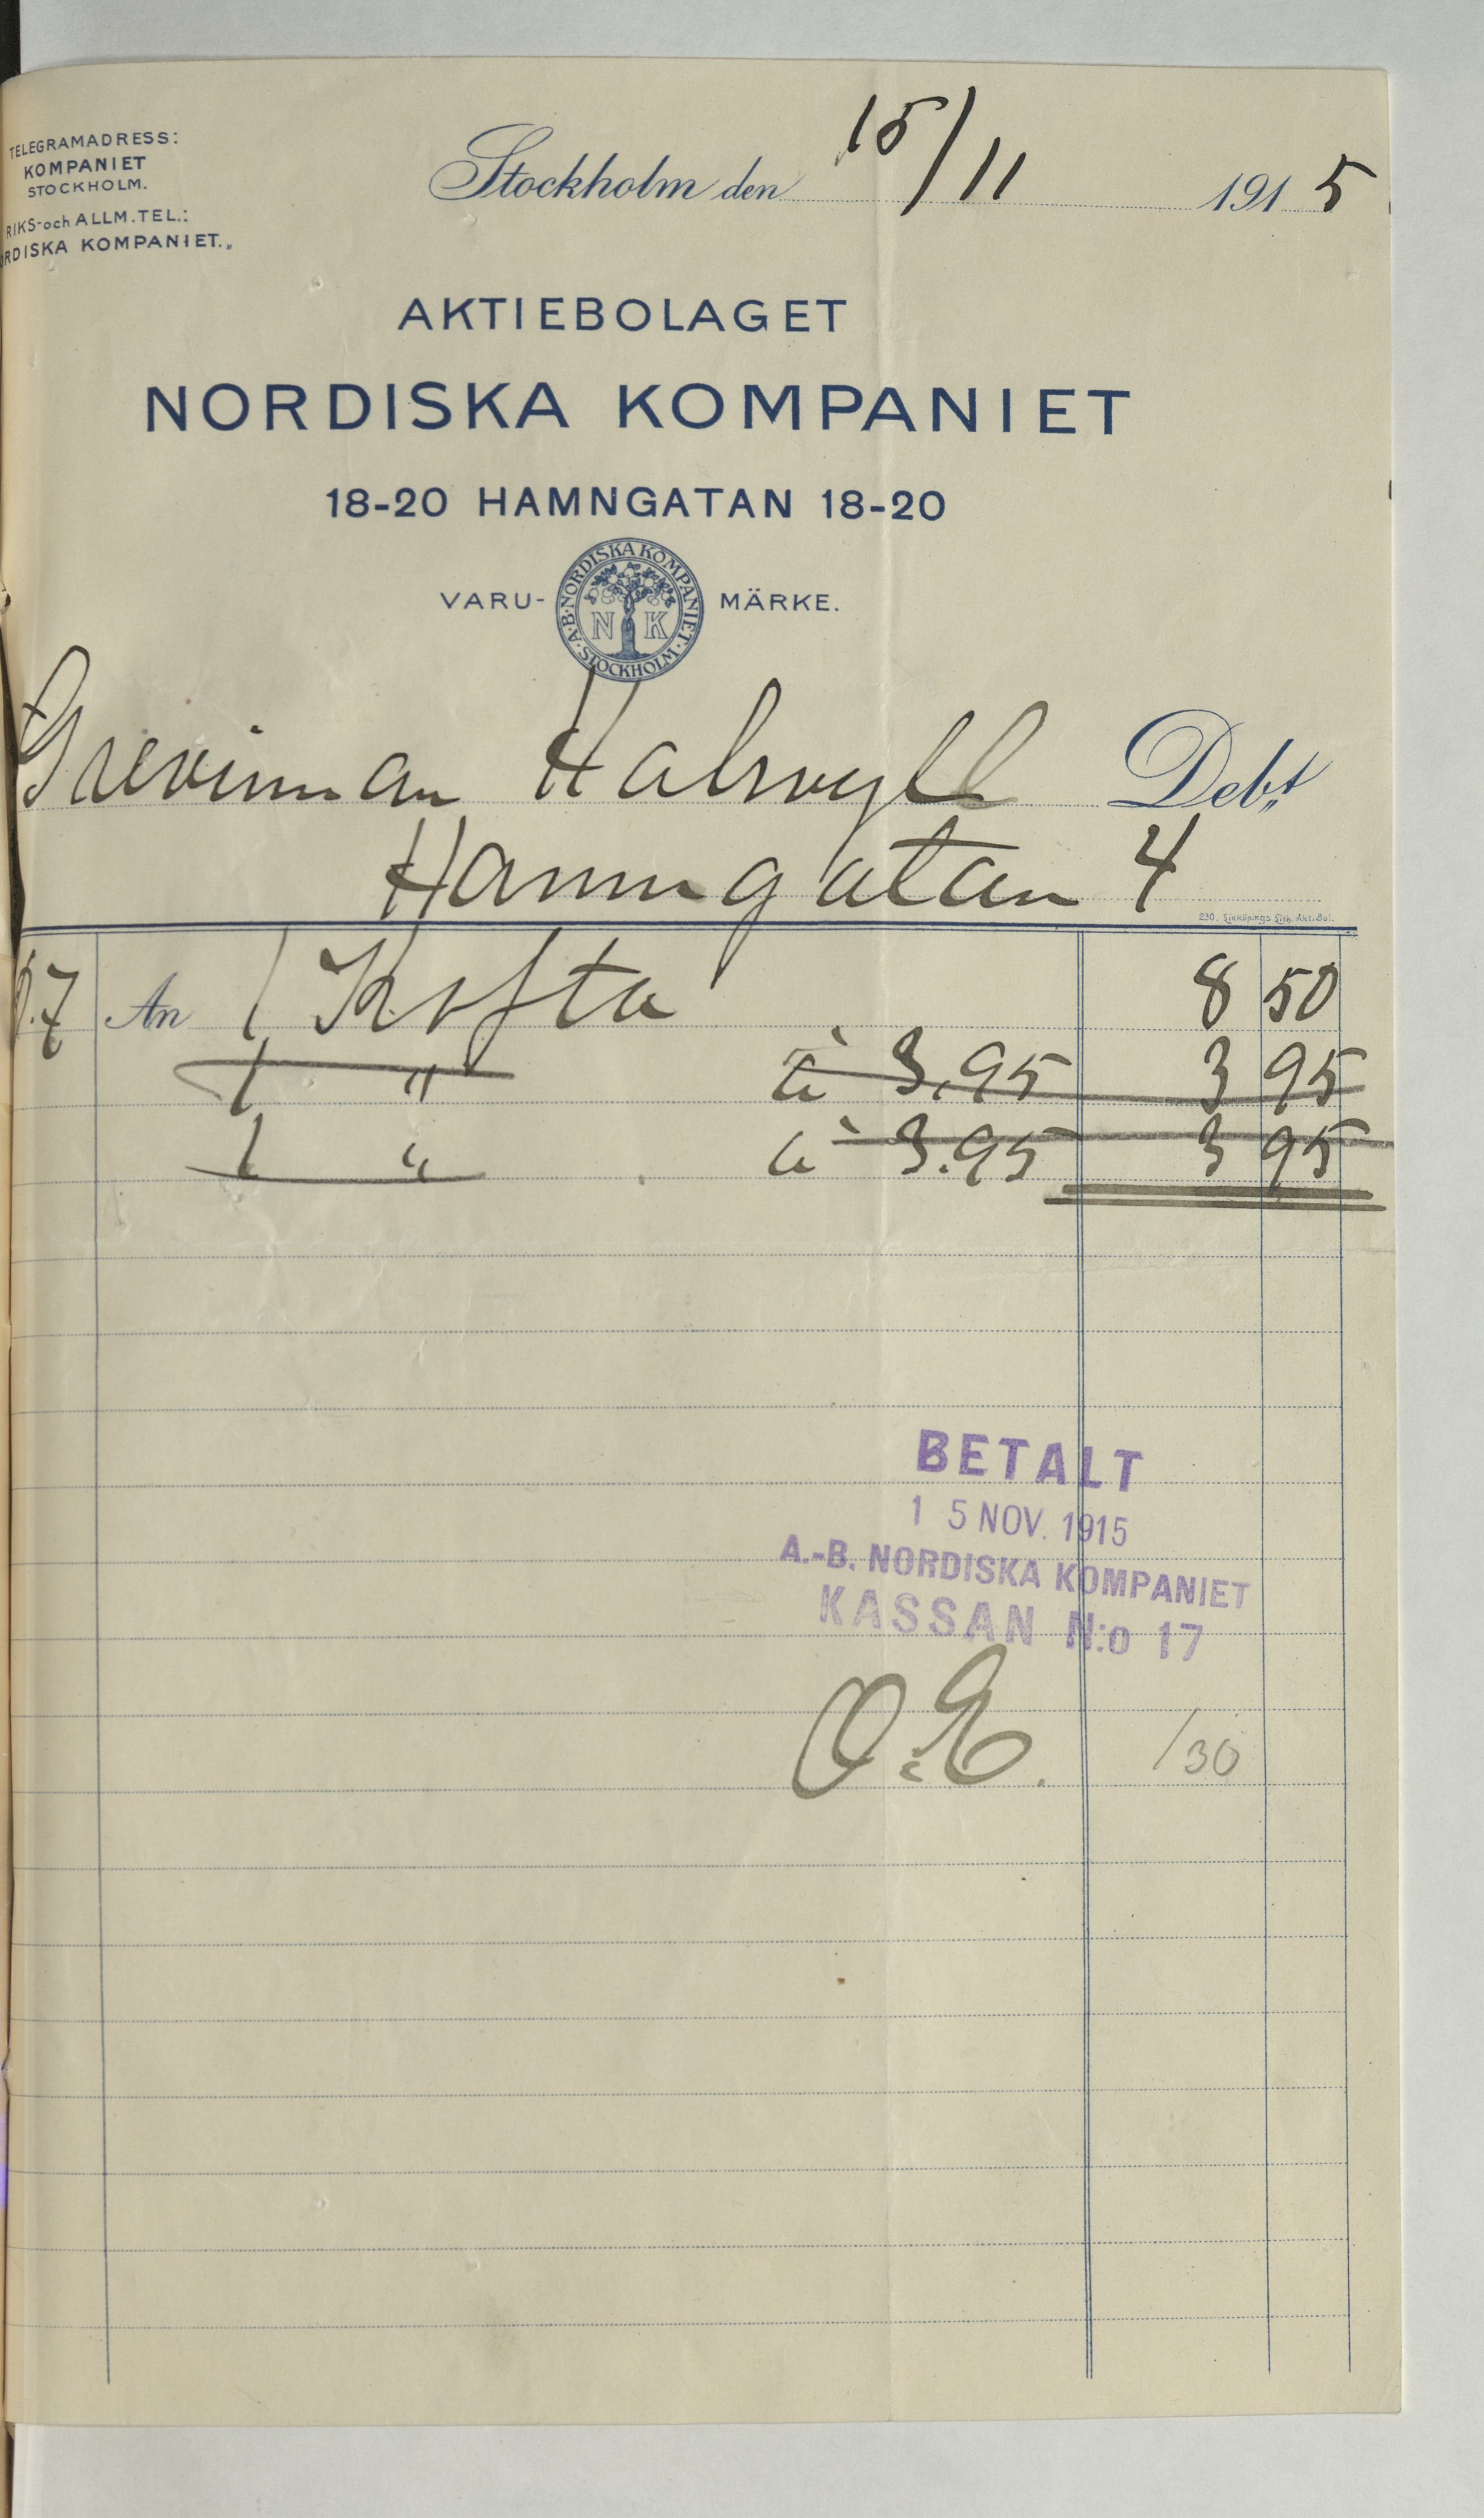 TELEGRAMADRESS:
KOMPANIET
STOCKHOLM.
RIKS- och ALLM. TEL.:
RDISKA KOMPANIET.„
Stockholm den 15/11 1915
AKTIEBOLAGET
NORDISKA KOMPANIET
18-20 HAMNGATAN 18-20
VARU- MÄRKE.
A.B. NORDISKA KOMPANIET. STOCKHOLM.
N K
Grevinnan Halwyll Debt
Hamngatan 4
230. Linköpings Lith. Akt. Bol.
An 1 Kofta 8 50
1 " à 3,95 3 95
1 " à 3.95 3 95
BETALT
15 NOV. 1915
A.-B. NORDISKA KOMPANIET
KASSAN N:o 17
O.E.
/30